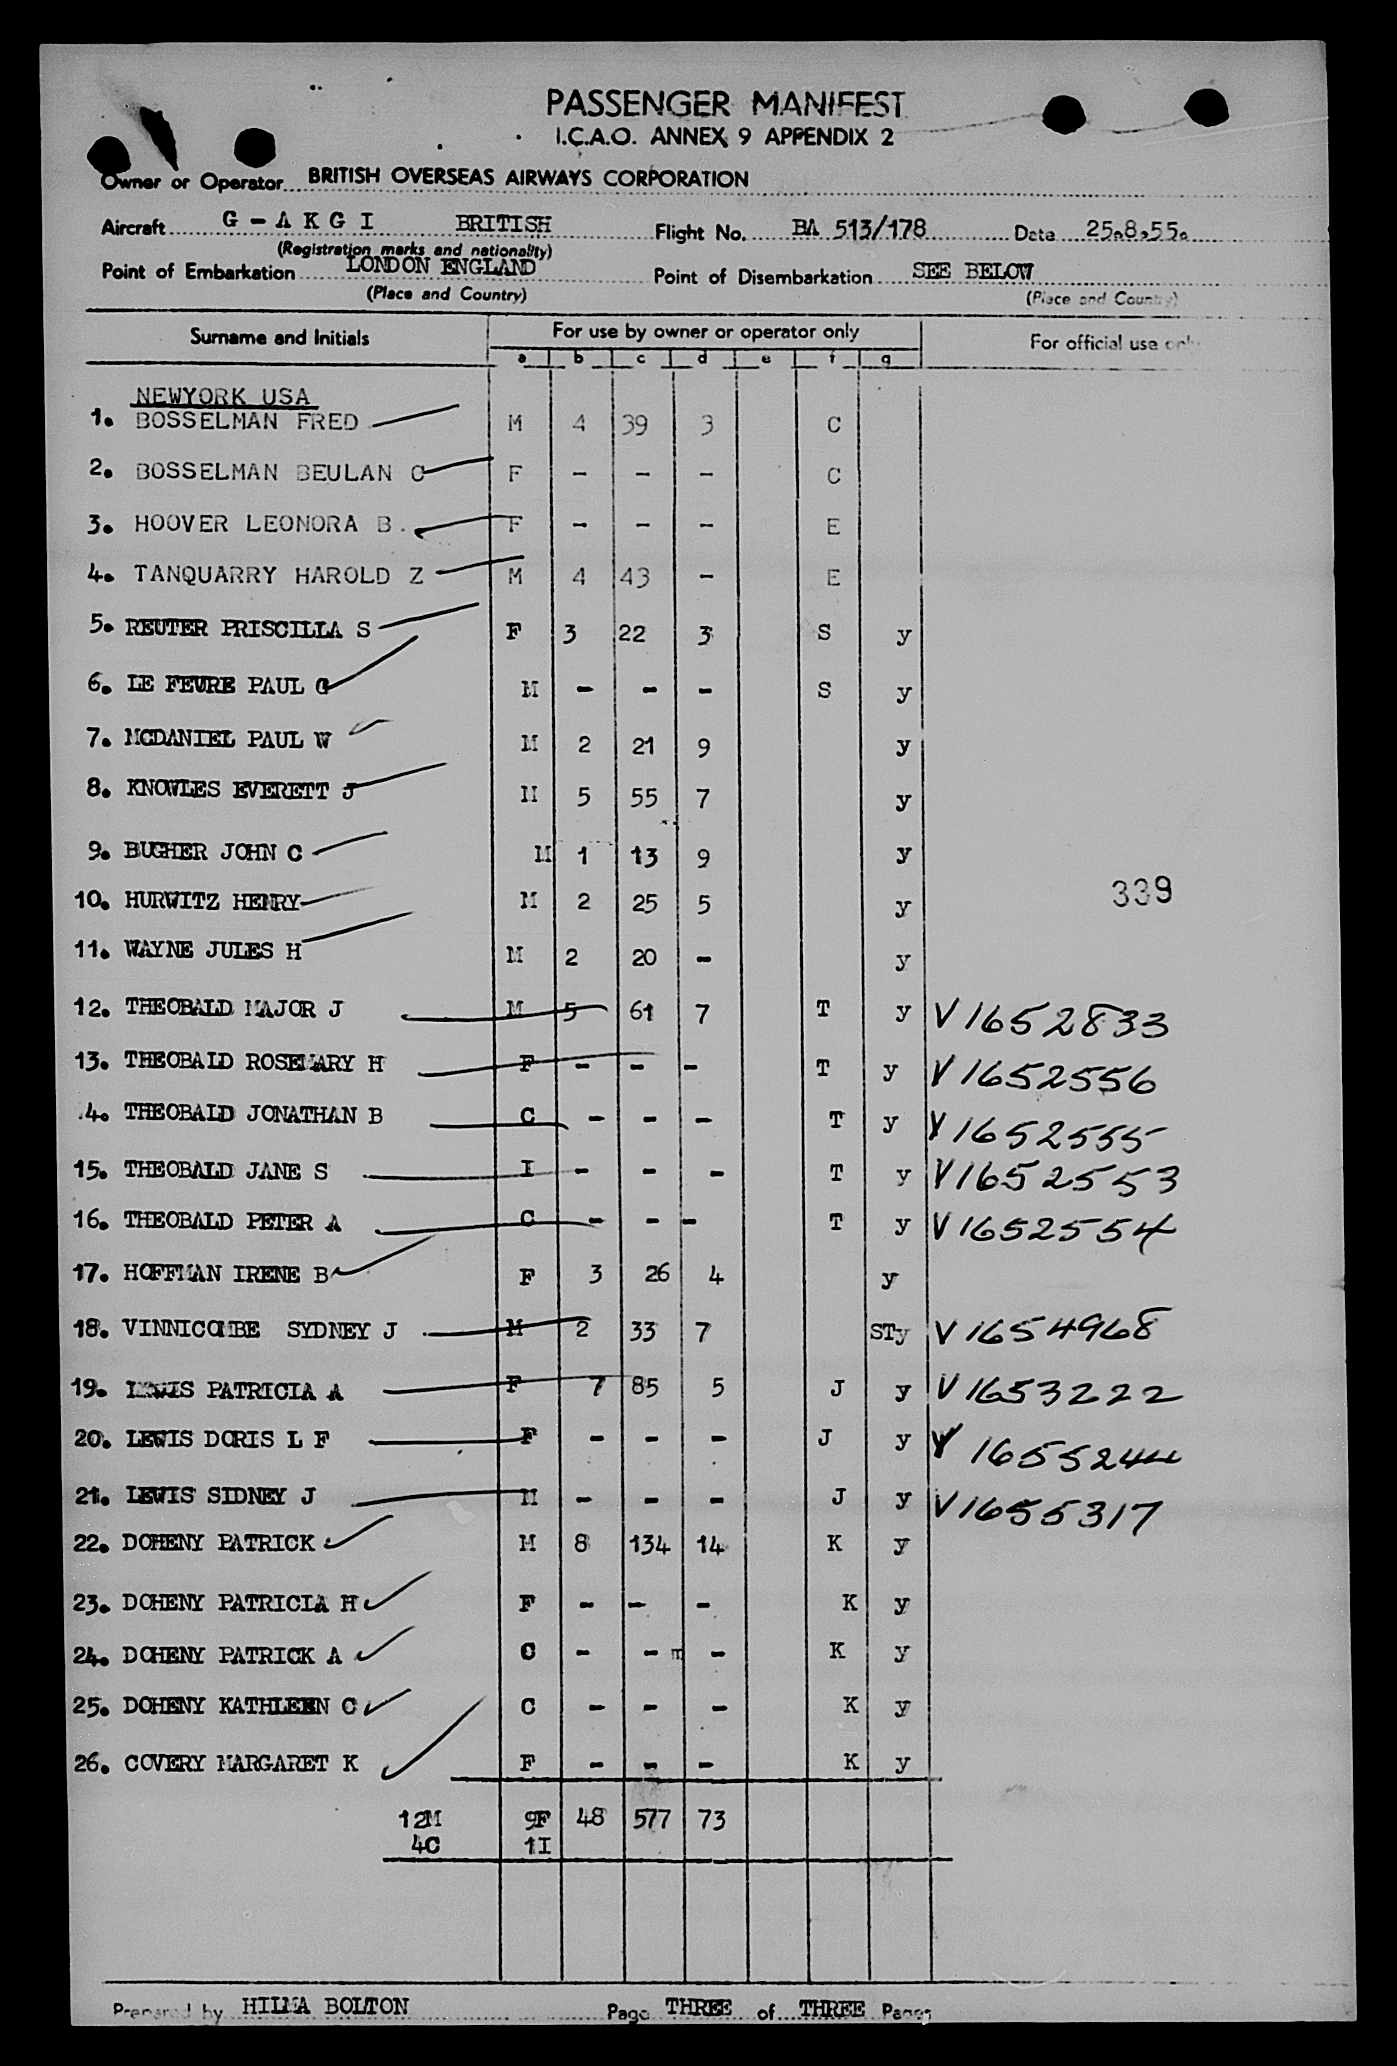 PASSENGER MANIFEST
I.C.A.O. ANNEX 9 APPENDIX 2
Owner or Operator BRITISH OVERSEAS AIRWAYS CORPORATION
Aircraft G - A K G I BRITISH Flight No. BA 513/178 Date 25.8.55.
(Registration marks and nationality)
Point of Embarkation LONDON ENGLAND Point of Disembarkation SEE BELOW
(Place and Country) (Place and Country)
Surname and Initials For use by owner or operator only For official use only
a b c d e f g
NEWYORK USA
1. BOSSELMAN FRED M 4 39 3 C
2. BOSSELMAN BEULAN C F - - - C
3. HOOVER LEONORA B. F - - - E
4. TANQUARRY HAROLD Z M 4 43 - E
5. REUTER PRISCILLA S F 3 22 3 S y
6. LE FEVRE PAUL G M - - - S y
7. MCDANIEL PAUL W M 2 21 9 y
8. KNOWLES EVERETT J M 5 55 7 y
9. BUGHER JOHN C M 1 13 9 y
339
10. HURWITZ HENRY M 2 25 5 y
11. WAYNE JULES H M 2 20 - y
12. THEOBALD MAJOR J M 5 61 7 T y V1652833
13. THEOBALD ROSEMARY H F - - - T y V1652556
4. THEOBALD JONATHAN B C - - - T y V1652555
15. THEOBALD JANE S I - - - T y V1652553
16. THEOBALD PETER A C - - - T y V1652554
17. HOFFMAN IRENE B F 3 26 4 y
18. VINNICOMBE SYDNEY J M 2 33 7 STy V1654968
19. LEWIS PATRICIA A F 7 85 5 J y V1653222
20. LEWIS DORIS L F F - - - J y V1655244
21. LEWIS SIDNEY J M - - - J y V1655317
22. DOHENY PATRICK M 8 134 14 K y
23. DOHENY PATRICIA H F - - - K y
24. DOHENY PATRICK A C - - m - K y
25. DOHENY KATHLEEN C C - - - K y
26. COVERY MARGARET K F - - - K y
12M 9F 48 577 73
4C 1I
Prepared by HILMA BOLTON Page THREE of THREE Pages